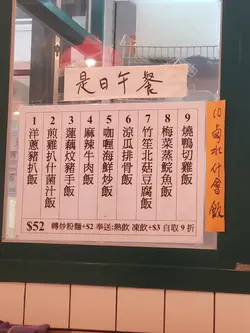 是日午餐
1 洋蔥豬扒飯
2 煎雞扒什菌汁飯
3 蓮藕炆豬手飯
4 麻辣牛肉飯
5 咖喱海鮮炒飯
6 涼瓜排骨飯
7 竹笙北菇豆腐飯
8 梅菜蒸鯇魚飯
9 燒鴨切雞飯
10 卤水什會飯
$52 轉炒粉麵+$2 奉送:熱飲 凍飲+$3 自取9折